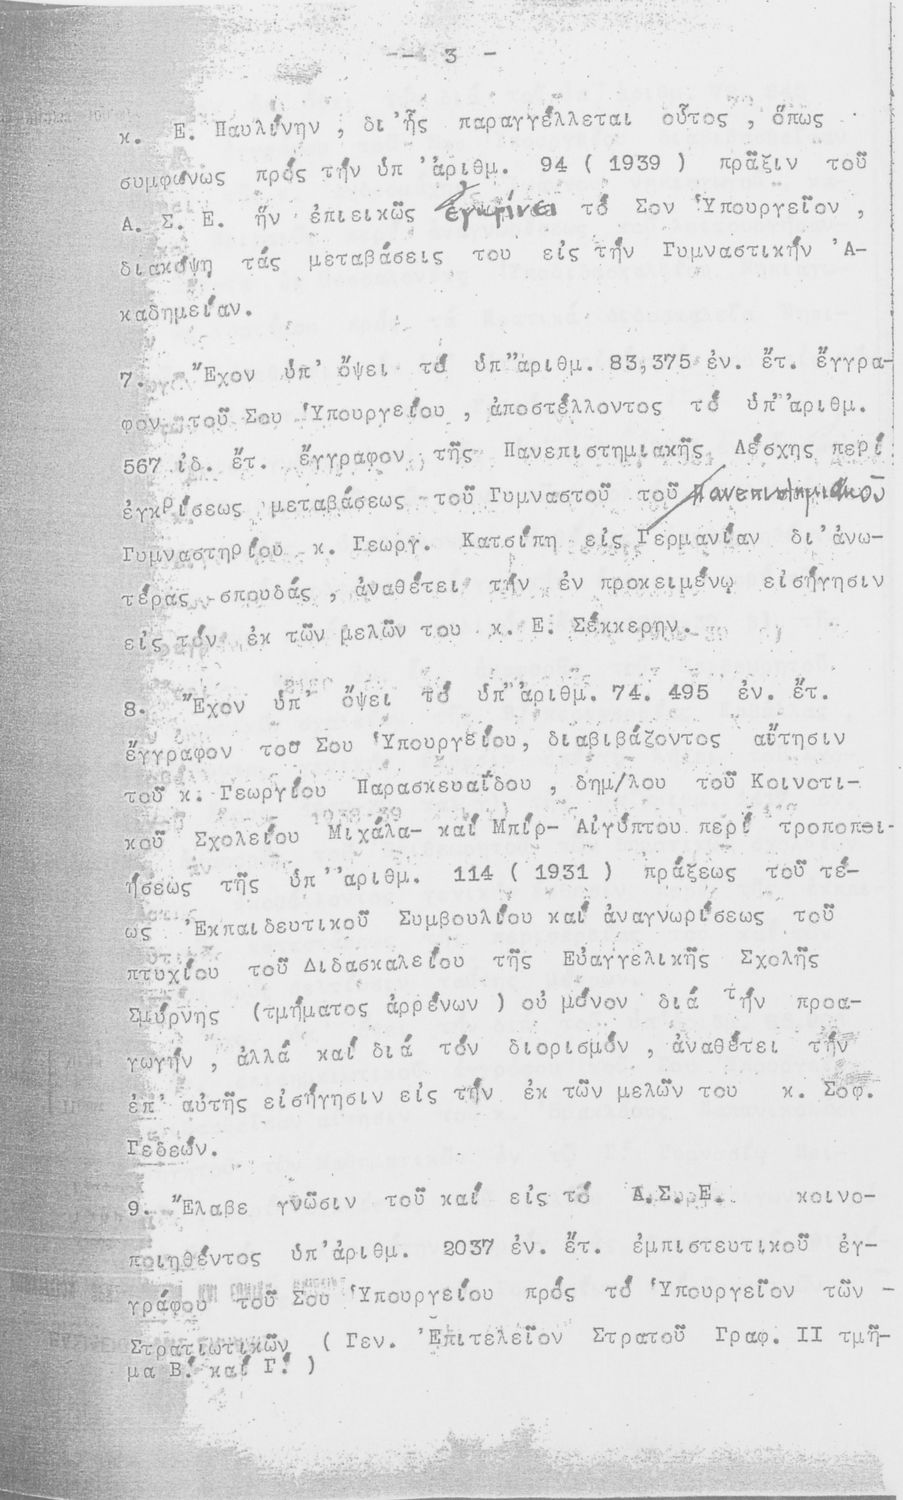 -- 3 -
κ. Ε. Παυλίνην , δι'ἧς παραγγέλλεται οὗτος , ὅπως
συμφώνως πρός τήν ὑπ 'ἀριθμ. 94 ( 1939 ) πρᾶξιν τοῦ
Α. Σ. Ε. ἥν ἐπιεικῶς ἐγκρίνει τό Σον Ὑπουργεῖον ,
διακόψῃ τάς μεταβάσεις του εἰς τήν Γυμναστικήν 'Α-
καδημείαν.
7. "Εχον ὑπ' ὄψει τό ὑπ"ἀριθμ. 83,375 ἐν. ἔτ. ἔγγρα-
φον τοῦ Σου Ὑπουργείου , ἀποστέλλοντος τό ὑπ'ἀριθμ.
567 ἰδ. ἔτ. ἔγγραφον τῆς Πανεπιστημιακῆς Λέσχης περί
ἐγκρίσεως μεταβάσεως τοῦ Γυμναστοῦ τοῦ Πανεπιστημιακοῦ
Γυμναστηρίου κ. Γεωργ. Κατσίπη εἰς Γερμανίαν δι'ἀνω-
τέρας σπουδάς , ἀναθέτει τήν ἐν προκειμένῳ εἰσήγησιν
εἰς τόν ἐκ τῶν μελῶν του κ. Ε. Σέκκερην.
8. "Εχον ὑπ' ὄψει τό ὑπ"ἀριθμ. 74. 495 ἐν. ἔτ.
ἔγγραφον του Σου Ὑπουργείου, διαβιβάζοντος αἴτησιν
τοῦ κ. Γεωργίου Παρασκευαΐδου , δημ/λου τοῦ Κοινοτι-
κοῦ Σχολείου Μιχάλα- καί Μπίρ- Αἰγύπτου περί τροποποι-
ήσεως τῆς ὑπ''ἀριθμ. 114 ( 1931 ) πράξεως τοῦ τέ-
ως 'Εκπαιδευτικοῦ Συμβουλίου καί ἀναγνωρίσεως τοῦ
πτυχίου τοῦ Διδασκαλείου τῆς Εὐαγγελικῆς Σχολῆς
Σμύρνης (τμήματος ἀρρένων ) οὐ μόνον διά τήν προα-
γωγήν , ἀλλά καί διά τόν διορισμόν , ἀναθέτει τήν
ἐπ' αὐτῆς εἰσήγησιν εἰς τήν ἐκ τῶν μελῶν του κ. Σοφ.
Γεδεών.
9. "Ελαβε γνῶσιν τοῦ καί εἰς τό Α.Σ.Ε. κοινο-
ποιηθέντος ὑπ'ἀριθμ. 2037 ἐν. ἔτ. ἐμπιστευτικοῦ ἐγ-
γράφου τοῦ Σου Ὑπουργείου πρός τό Ὑπουργεῖον τῶν -
Στρατιωτικῶν ( Γεν. 'Επιτελεῖον Στρατοῦ Γραφ. ΙΙ τμῆ-
μα Β.' καί Γ.' )